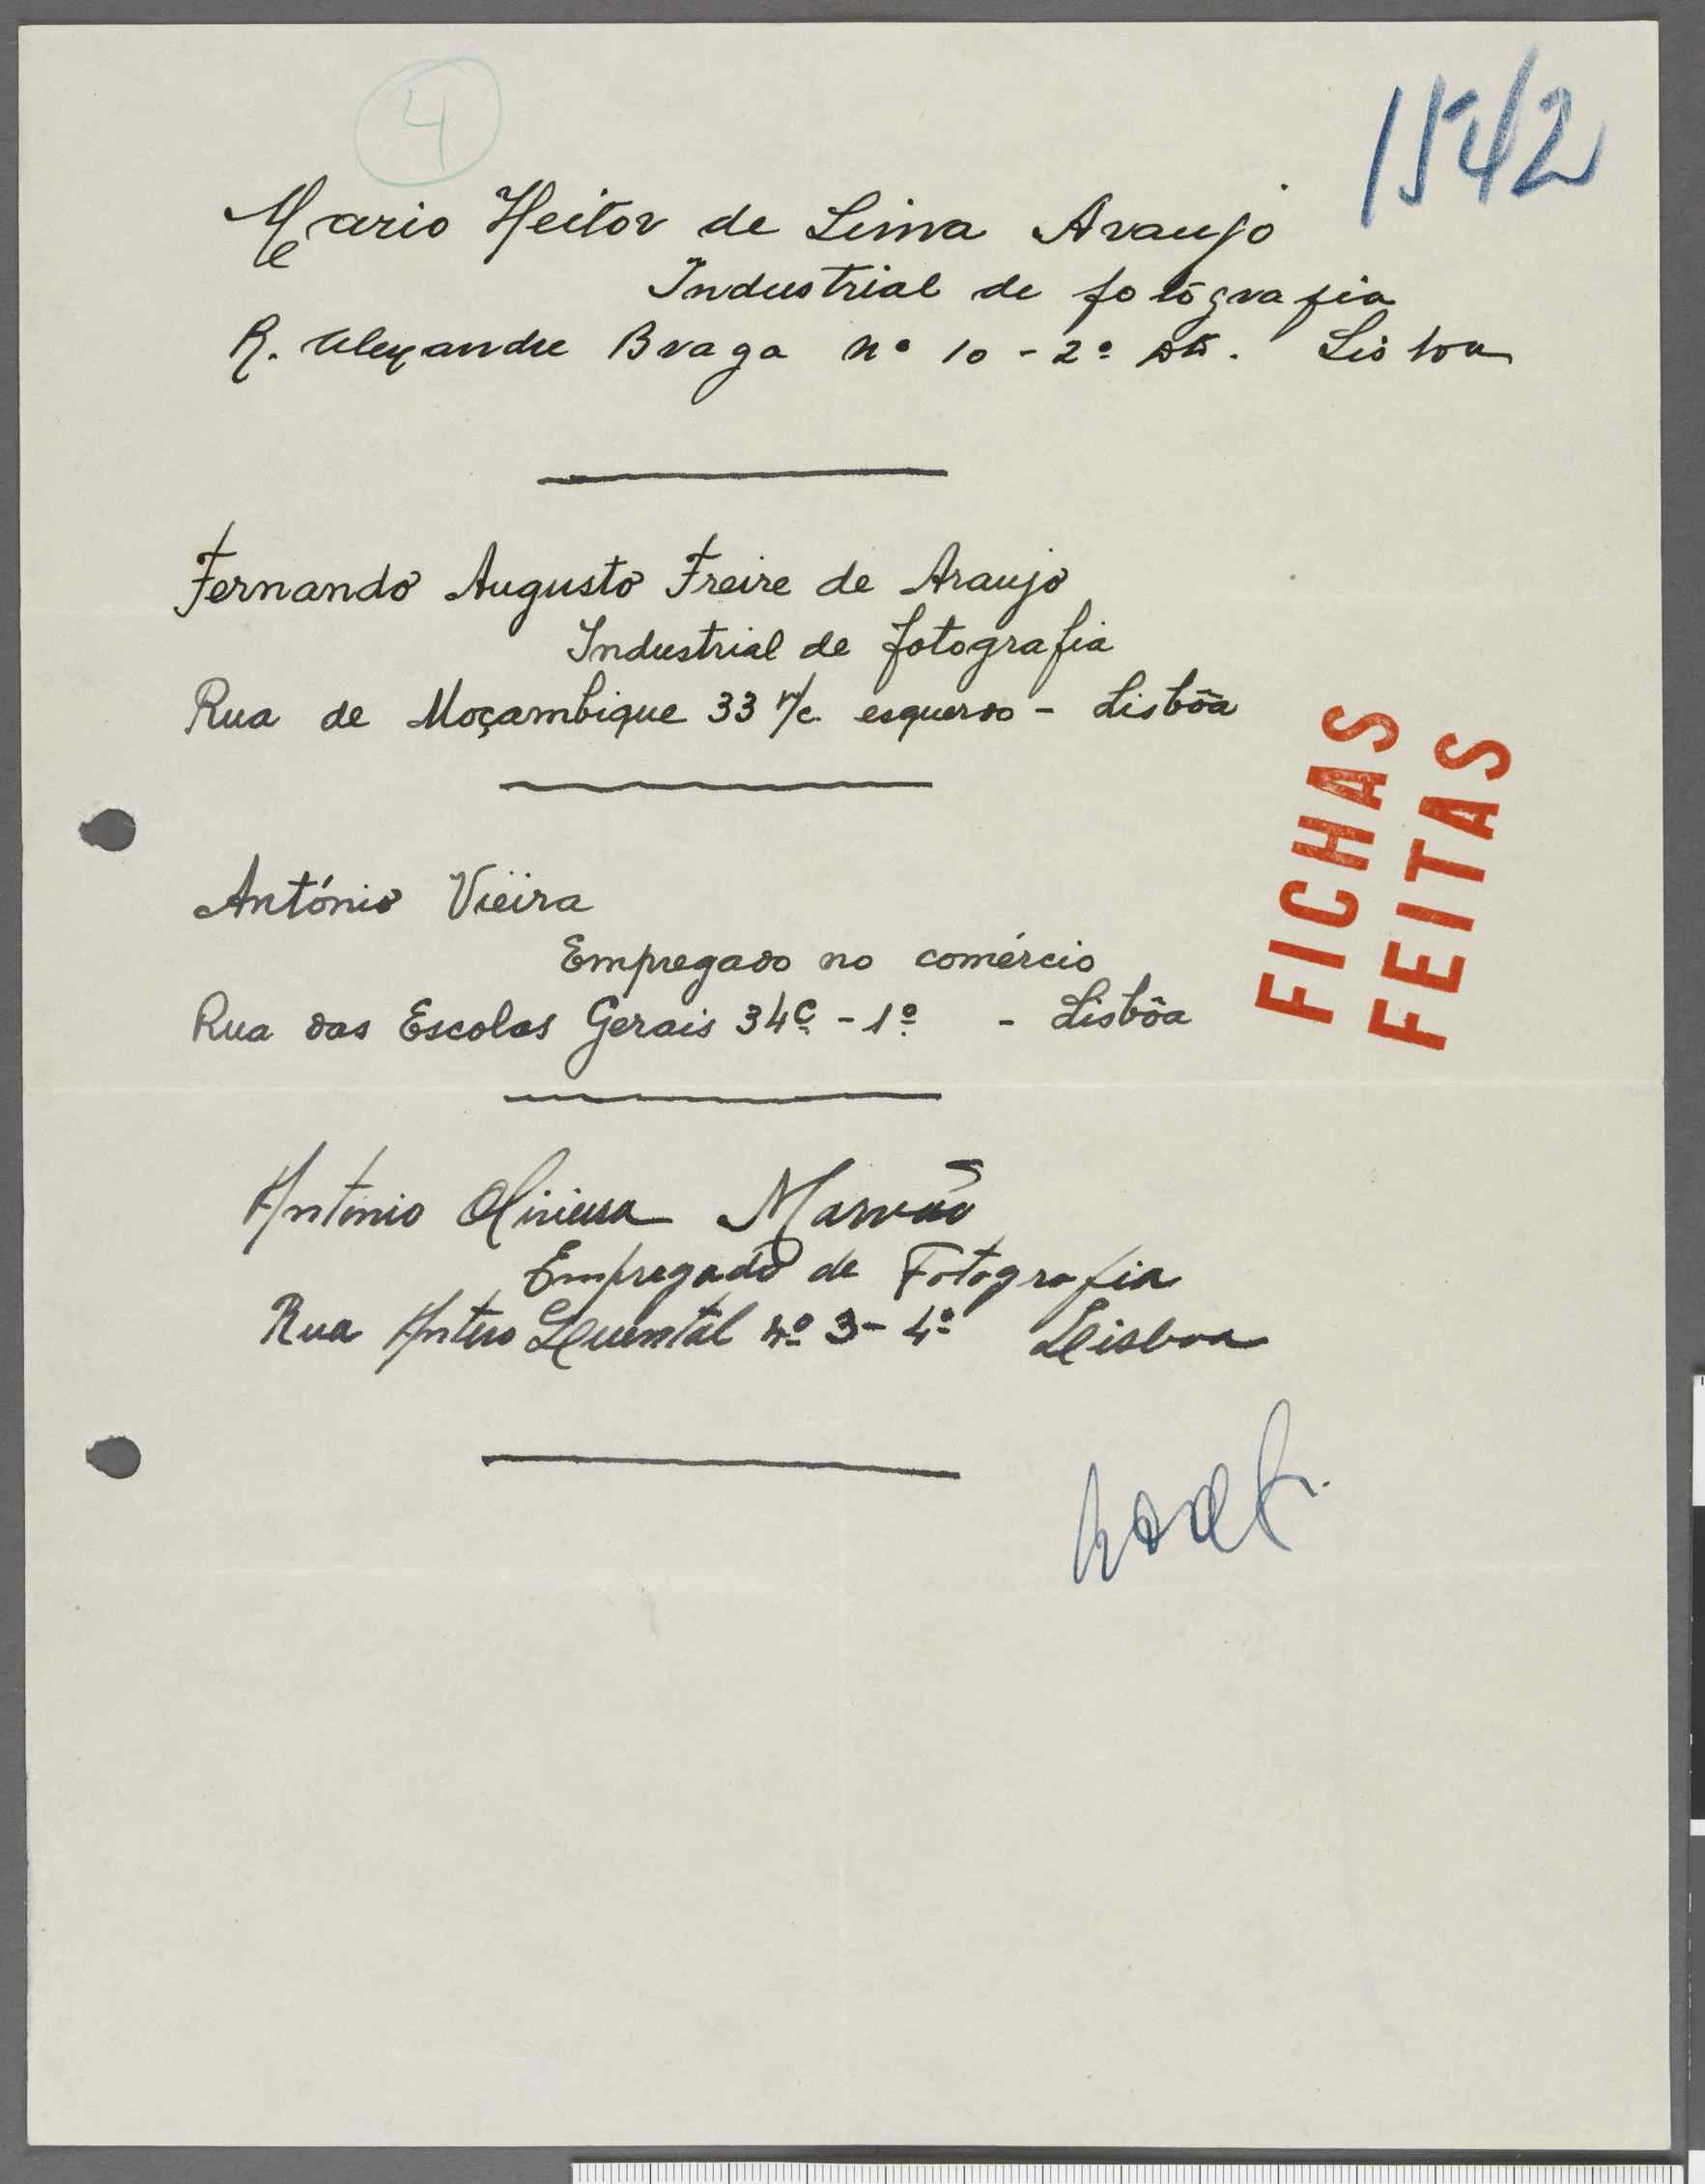 4
1542
Mario Heitor de Lima Araujo
Industrial de fotografia
R. Alexandre Braga nº 10 - 2º Dtº. Lisboa
Fernando Augusto Freire de Araujo
Industrial de fotografia
Rua de Moçambique 33 r/c. esquerdo - Lisbôa
António Vieira
Empregado no comércio
Rua das Escolas Gerais 34C - 1º - Lisbôa
FICHAS
FEITAS
Antonio Oliveira Marvão
Empregado de Fotografia
Rua Antero Quental nº 3 - 4º Lisboa